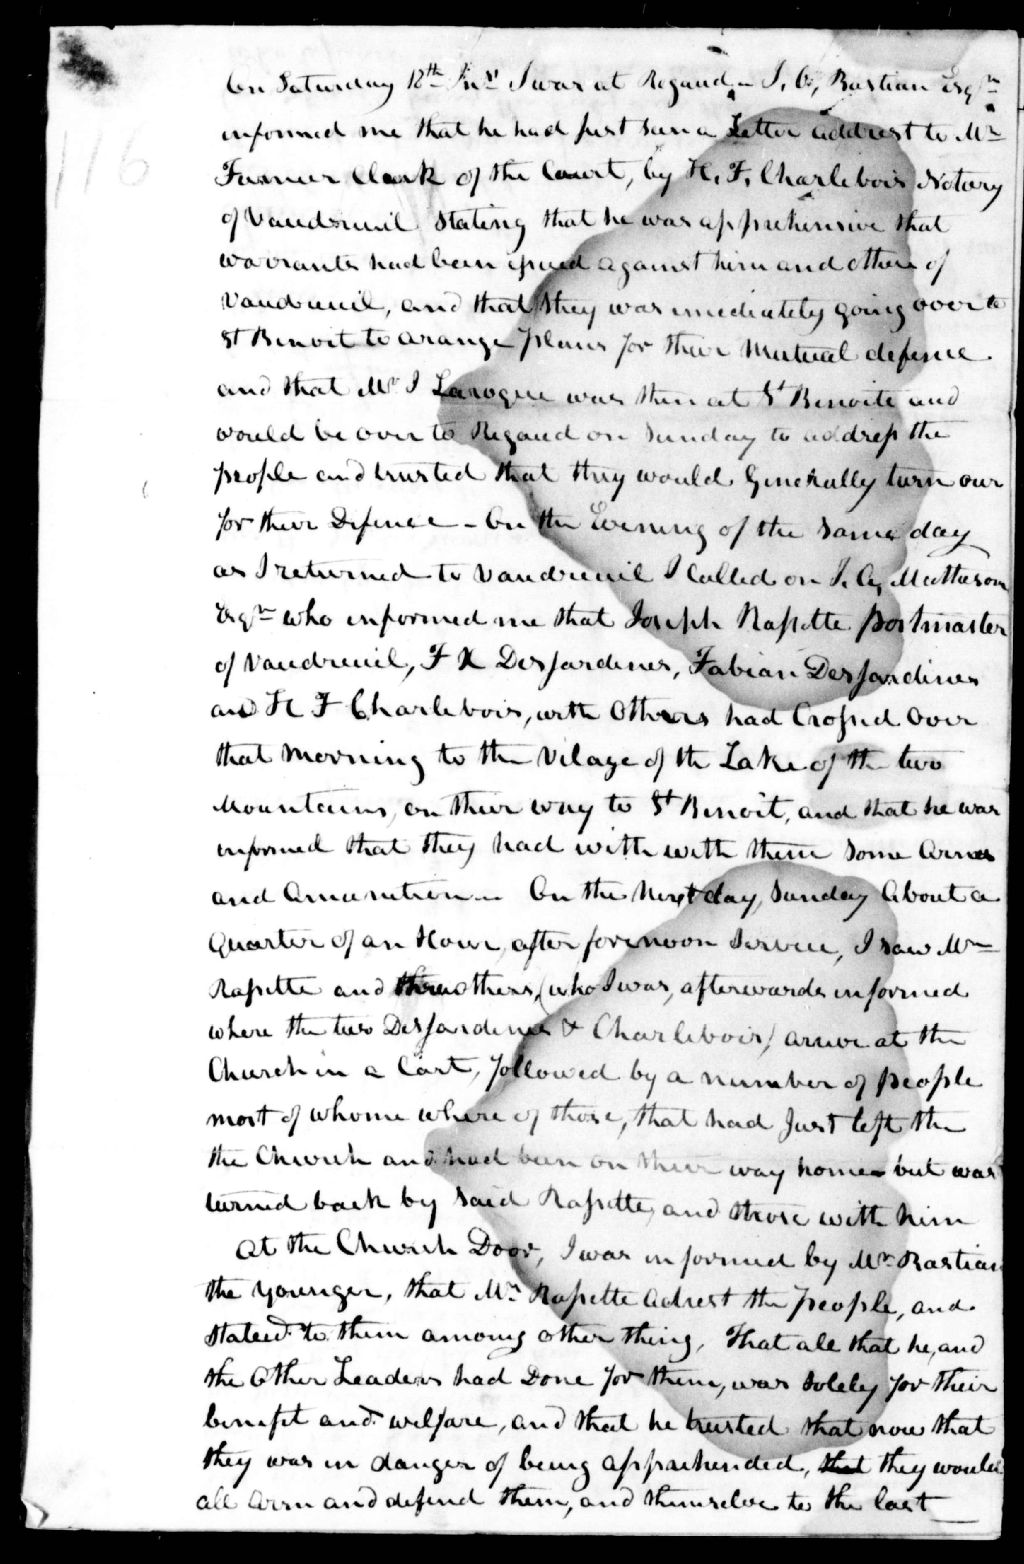 116
On Saturday 18th Inst I was at Regaud - J. G, Bastian Esqr
informed me that he had just seen a Letter addrest to Mr
Farmer Clark of the Court, by H. F. Charlebois Notary
of Vaudreuil Stating that he was apprehensive that
warrants had been issued against him and others of
Vaudreuil, and that they was imediately going over to
St Benoit to arange plans for their Mutual defence
and that Mr J Laroque was then at St Benoite and
would be over to Regaud on Sunday to address the
people and trusted that they would Generally turn our
for their Defence - On the Evening of the same day
as I returned to Vaudreuil I Called on J. G, Matheson
Esqr who informed me that Joseph Rassette postmaster
of Vaudreuil, F X DesJardines, Fabian DesJardines
and H F Charlebois, with Others had Crossed Over
that Morning to the Vilage of the Lake of the two
Mountains, on their way to St Benoit, and that he was
informed that they had with with them some Arms
and Amunition - On the Next day, Sunday About a
Quarter of an Hour, after forenoon Service, I saw Mr
Rassette and three others, (who I was, afterwards informed
where the two DesJardines & Charlebois) arrive at the
Church in a Cart, followed by a number of people
most of whome where of those, that had Just left the
the Church and had been on their way home but was
turned back by said Rassette, and those with him
At the Church Door, I was informed by Mr Bastian
the younger, that Mr Rassette adrest the people, and
stated to them among other thing, That all that he, and
the Other Leaders had Done for them, was solely for their
benefit and welfare, and that he trusted that now that
they was in danger of being apprehended, that they would
all Arm and defend them, and themselve to the last